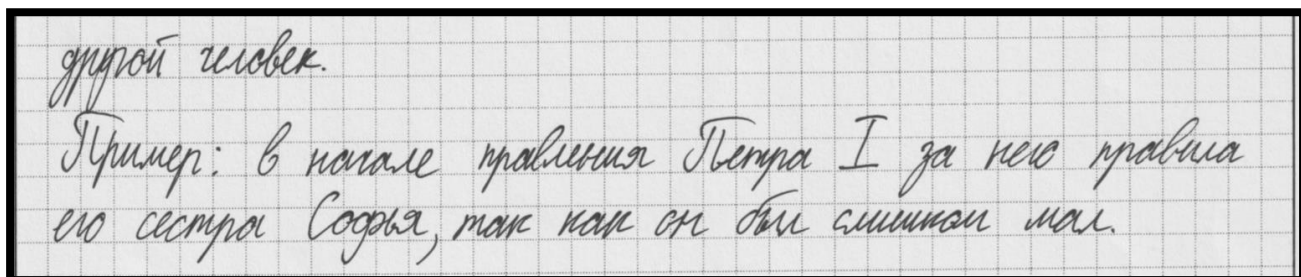 другой человек.
Пример: в начале правления Петра I за него правила
его сестра Софья, так как он был слишком мал.